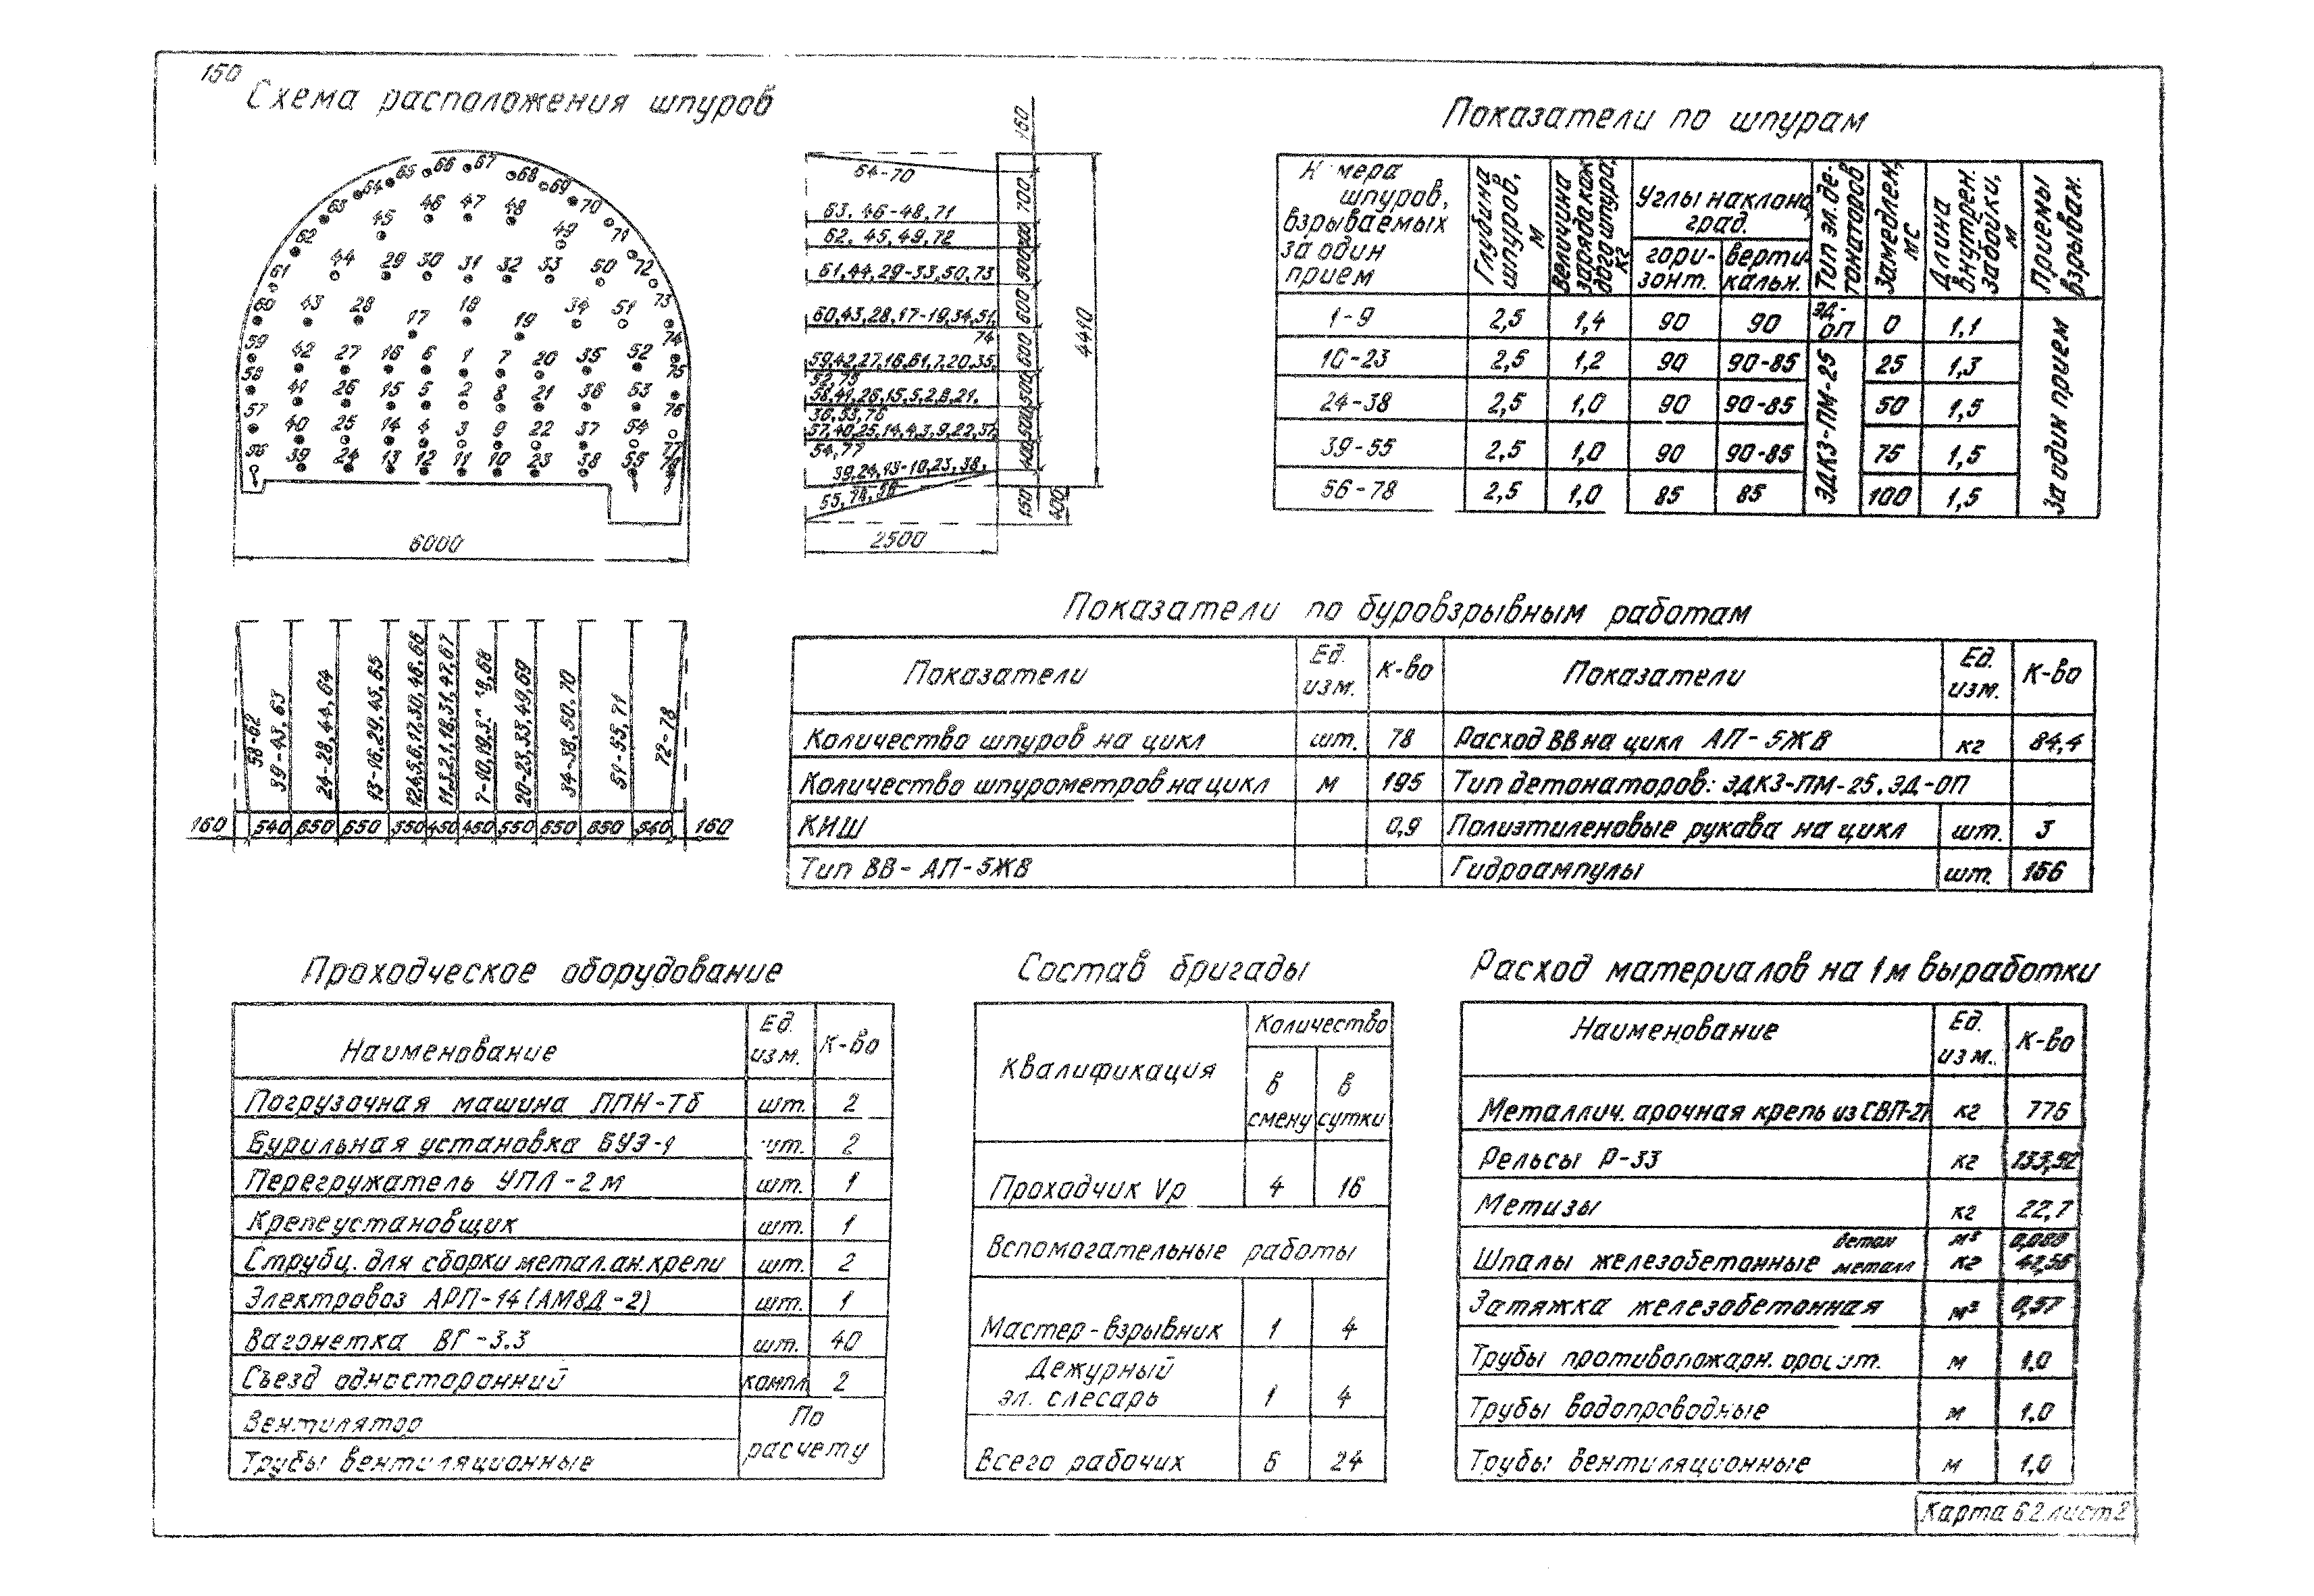 150
Схема расположения шпуров
64-70
63. 46-48,71
62. 45,49,72
61,44,29-33,50,73
60,43,28,17-19,34,51,
74
59,42,27,16,61,7,20,35,
52,75
58,41,26,15,5,2,8,21.
36,53,76
57,40,25,14,4,3,9,22,37,
54,77
39,24,13-10,23,38,
55,78,56
4410
150
400
2500
6000
65 66 67 68
64 69
63 70
46 47 48
45 49
62 71
44 29 30 31 32 33 50 72
61
60 43 28 18 34 51 73
17 19
59 42 27 16 6 1 7 20 35 52 74
58 41 26 15 5 2 8 21 36 53 75
57 40 25 14 4 3 9 22 37 54 76
56 39 24 13 12 11 10 23 38 55 77
78
58-62
39-43,63
24-28,44,64
13-16,29,45,65
12,4,5,6,17,30,46,66
11,3,2,1,18,31,47,67
20-23,33,49,69
34-38,50,70
51-55,71
72-78
160 540 650 650 550 450 450 550 650 650 540 160
Показатели по шпурам
Н мера шпуров, взрываемых за один прием
Глубина шпуров, м
Величина заряда каждого шпура, кг
Углы наклона, град.
гори-зонт.
верти-кальн.
Тип эл.де-тонаторов
Замедлен, мс
Длина внутрен. забойки, м
Приемы взрыван.
1-9 2,5 1,4 90 90 ЭД-ОП 0 1,1
10-23 2,5 1,2 90 90-85 25 1,3
24-38 2,5 1,0 90 90-85 50 1,5
39-55 2,5 1,0 90 90-85 75 1,5
56-78 2,5 1,0 85 85 100 1,5
ЭДКЗ-ПМ-25
За один прием
Показатели по буровзрывным работам
Показатели Ед. изм. К-во Показатели Ед. изм. К-во
Количество шпуров на цикл шт. 78 Расход ВВ на цикл АП-5ЖВ кг 84,4
Количество шпурометров на цикл м 195 Тип детонаторов: ЭДКЗ-ПМ-25. ЭД-ОП
КИШ 0,9 Полиэтиленовые рукава на цикл шт. 3
Тип ВВ-АП-5ЖВ Гидроампулы шт. 156
Проходческое оборудование
Наименование Ед. изм. К-во
Погрузочная машина ППН-Тб шт. 2
Бурильная установка БУЭ-1 шт. 2
Перегружатель УПЛ-2м шт. 1
Крепеустановщик шт. 1
Струбц. для сборки метал.ан.крепи шт. 2
Электровоз АРП-14 (АМ8Д-2) шт. 1
Вагонетка ВГ-3.3 шт. 40
Съезд односторонний компл 2
Вентилятор
Трубы вентиляционные
По расчету
Состав бригады
Квалификация
Количество
в смену
в сутки
Проходчик Vр 4 16
Вспомогательные работы
Мастер-взрывник 1 4
Дежурный
эл. слесарь 1 4
Всего рабочих 6 24
Расход материалов на 1м выработки
Наименование Ед. изм. К-во
Металлич. арочная крепь из СВП-27 кг 776
Рельсы Р-33 кг 133,92
Метизы кг 22,7
Шпалы железобетонные
бетон м³
металл кг
Затяжка железобетонная м³ 0,57
Трубы противопожарн. оросит. м 1.0
Трубы водопроводные м 1.0
Трубы вентиляционные м 1,0
Карта 6.2.лист2